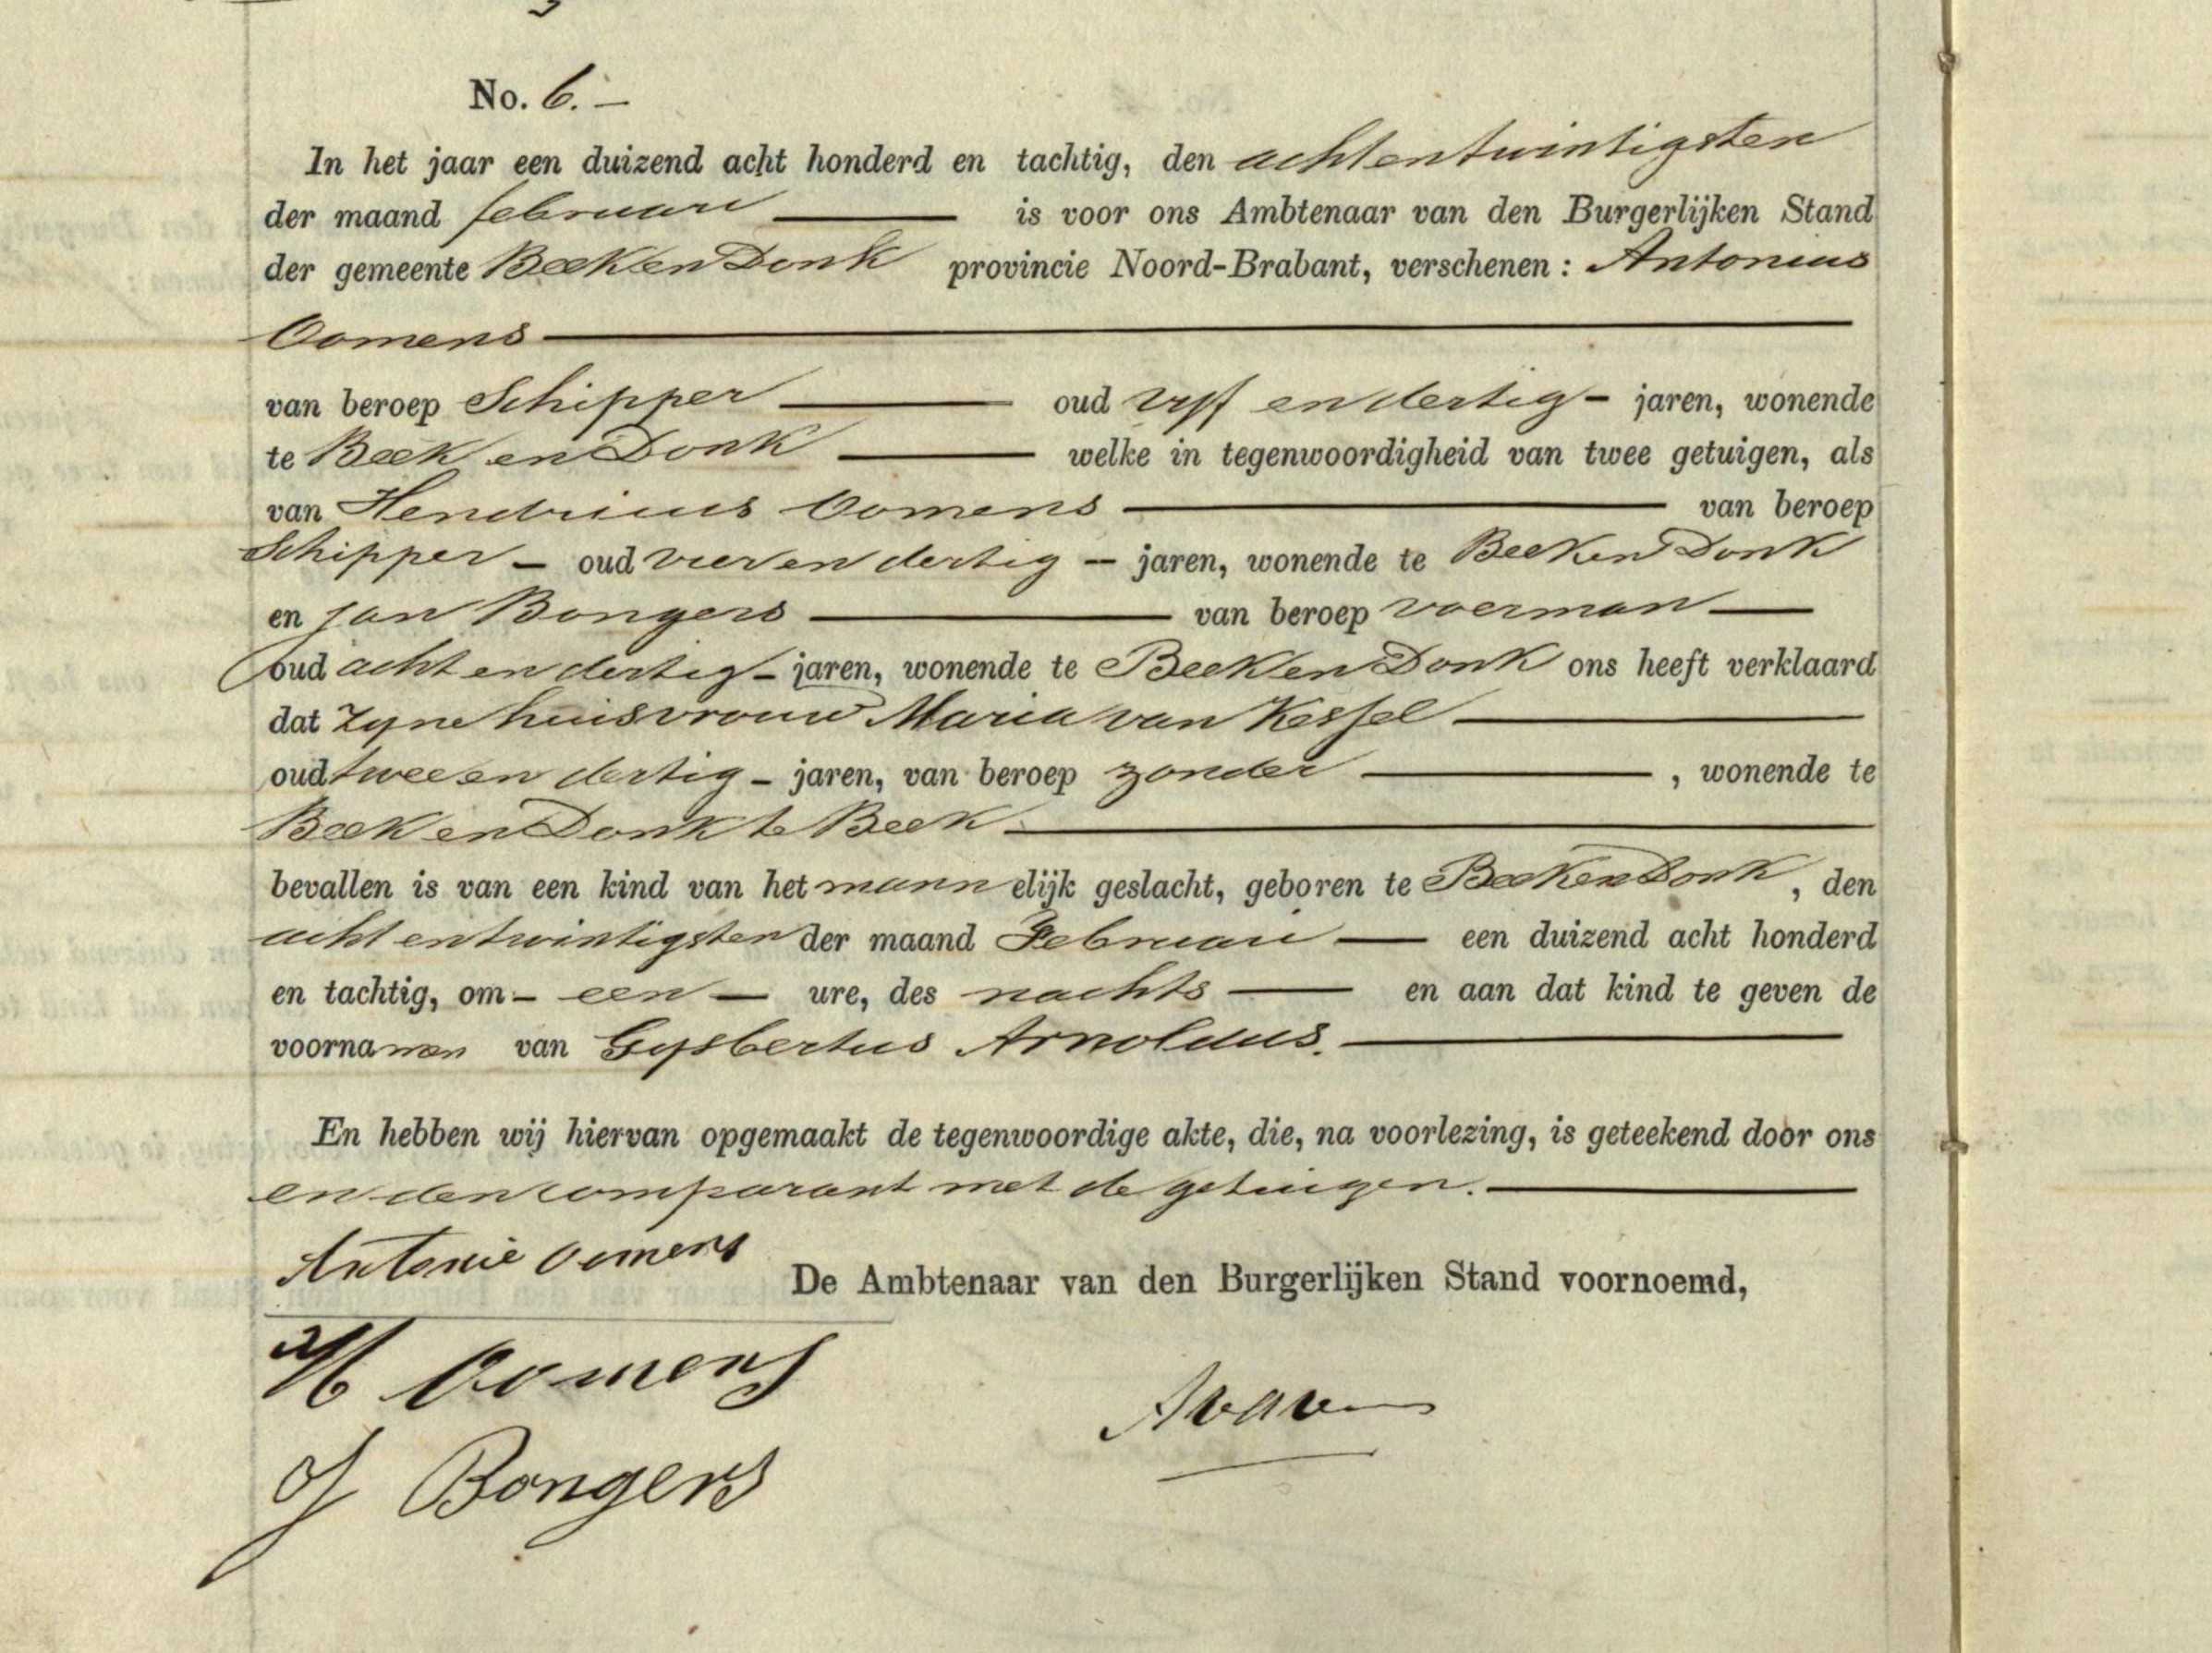 No. 6. —
In het jaar een duizend acht honderd en tachtig, den achtentwintigsten
der maand februari — is voor ons Ambtenaar van den Burgerlijken Stand
der gemeente Beek en Donk provincie Noord-Brabant, verschenen: Antonius
Oomens —
van beroep Schipper — oud vyf en dertig - jaren, wonende
te Beek en Donk — welke in tegenwoordigheid van twee getuigen, als
van Hendricus Oomens — van beroep
Schipper - oud vier en dertig - jaren, wonende te Beek en Donk
en Jan Bongers — van beroep voerman —
oud acht en dertig - jaren, wonende te Beek en Donk ons heeft verklaard
dat zyne huisvrouw Maria van Kessel —
oud twee en dertig - jaren, van beroep zonder — , wonende te
Beek en Donk te Beek —
bevallen is van een kind van het mannelijk geslacht, geboren te Beek en Donk, den
acht en twintigsten der maand Februari — een duizend acht honderd
en tachtig, om - een — ure, des nachts — en aan dat kind te geven de
voornamen van Gysbertus Arnoldus. —
En hebben wij hiervan opgemaakt de tegenwoordige akte, die, na voorlezing, is geteekend door ons
en den comparant met de getuigen. —
Antonie Oomens
De Ambtenaar van den Burgerlijken Stand voornoemd,
H Oomens
J Bongers